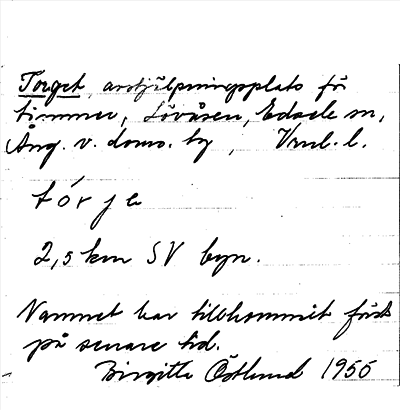 Torget, avstjälpningsplats för
timmer, Lövåsen, Edsele sn,
Ång. v. doms. by, Vrml. l.
tórje
2,5 km SV byn.
Namnet har tillkommit först
på senare tid.
Birgitta Östlund 1955